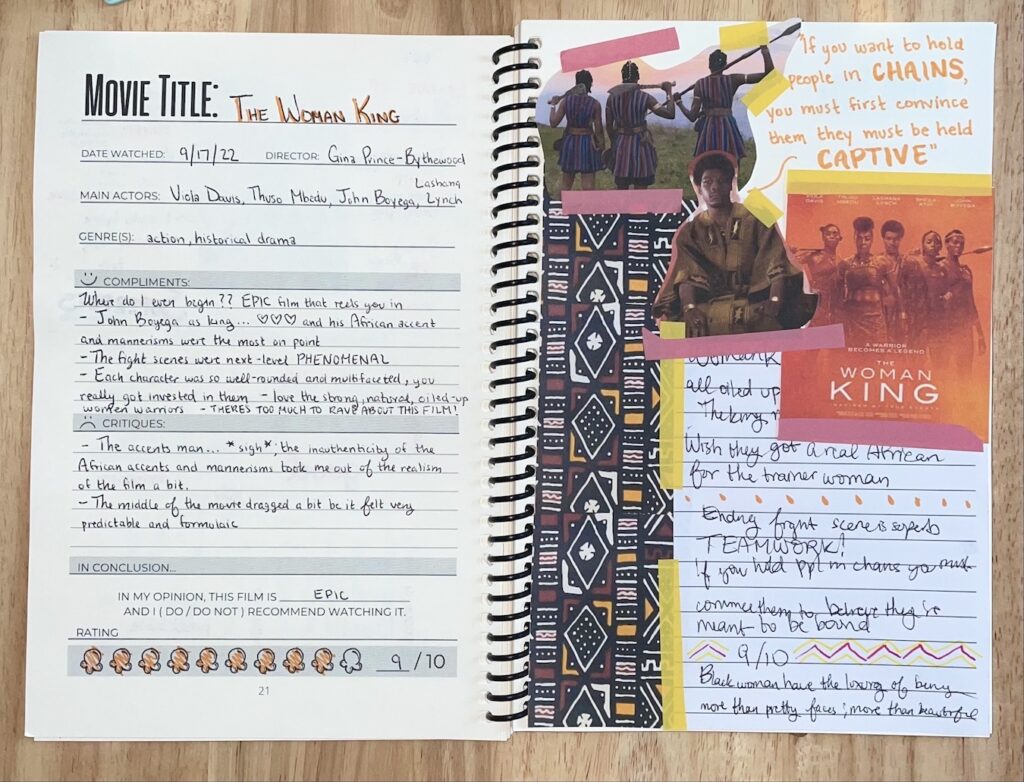 MOVIE TITLE: THE WOMAN KING
DATE WATCHED: 9/17/22 DIRECTOR: Gina Prince-Bythewood
Lashana
MAIN ACTORS: Viola Davis, Thuso Mbedu, John Boyega, Lynch
GENRE(S): action, historical drama
COMPLIMENTS:
Where do I even begin?? EPIC film that reels you in
- John Boyega as king... ♡♡♡ and his African accent
and mannerisms were the most on point
- The fight scenes were next-level PHENOMENAL
- Each character was so well-rounded and multifaceted, you
really got invested in them - love the strong, natural, oiled-up
women warriors - THERES TOO MUCH TO RAVE ABOUT THIS FILM!
CRITIQUES:
- The accents man.. *sigh* the inauthenticity of the
African accents and mannerisms took me out of the realism
of the film a bit.
- The middle of the movie dragged a bit bc it felt very
predictable and formulaic
IN CONCLUSION...
IN MY OPINION, THIS FILM IS EPIC
AND I ( DO / DO NOT ) RECOMMEND WATCHING IT.
RATING
9 /10
21
"If you want to hold
people in CHAINS,
you must first convince
them they must be held
CAPTIVE"
DAVIS MBEDU LASHANA LYNCH SHEILA ATIM JOHN BOYEGA
A WARRIOR
BECOMES A LEGEND
THE
WOMAN
KING
all oiled up
The king,
Wish they got a real African
for the trainer woman
Ending fight scene is superb
TEAMWORK!
If you hold ppl in chains you must
convince them to believe they're
meant to be bound
9/10
Black woman have the luxury of being
more than pretty faces; more than beautiful